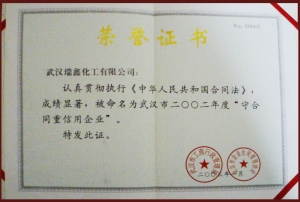 荣誉证书
武汉瑞鑫化工有限公司：
认真贯彻执行《中华人民共和国合同法》，
成绩显著，被命名为武汉市二〇〇二年度“守合
同重信用企业”。
特发此证。